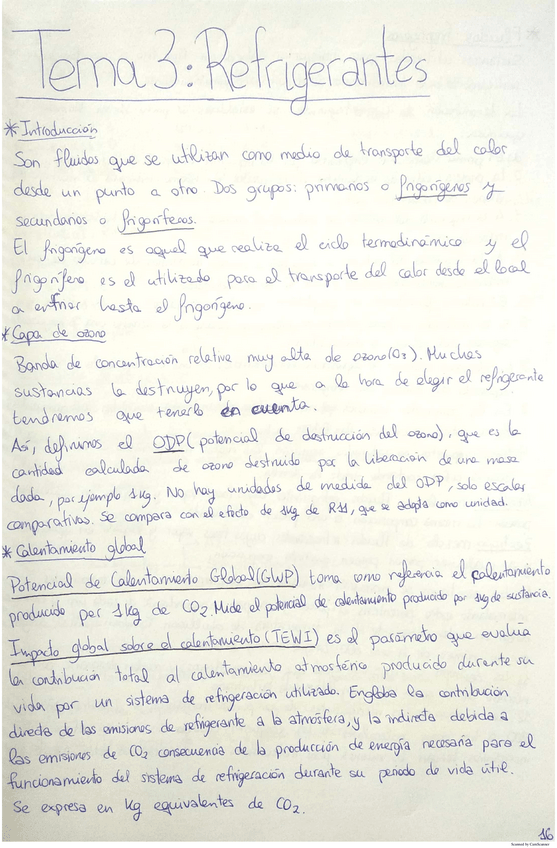 Tema 3: Refrigerantes
* Introducción
Son fluidos que se utilizan como medio de transporte del calor
desde un punto a otro. Dos grupos: primarios o frigorígenos y
secundarios o frigoríferos.
El frigorígeno es aquel que realiza el ciclo termodinámico y el
frigorífero es el utilizado para el transporte del calor desde el local
a enfriar hasta el frigorígeno.
* Capa de ozono
Banda de concentración relativa muy alta de ozono (O3). Muchas
sustancias la destruyen, por lo que a la hora de elegir el refrigerante
tendremos que tenerlo en cuenta.
Así, definimos el ODP (potencial de destrucción del ozono), que es la
cantidad calculada de ozono destruido por la liberación de una masa
dada, por ejemplo 1kg. No hay unidades de medida del ODP, solo escalas
comparativas. Se compara con el efecto de 1kg de R11, que se adopta como unidad.
* Calentamiento global
Potencial de Calentamiento Global (GWP) toma como referencia el calentamiento
producido por 1kg de CO2. Mide el potencial de calentamiento producido por 1kg de sustancia.
Impacto global sobre el calentamiento (TEWI) es el parámetro que evalúa
la contribución total al calentamiento atmosférico producido durante su
vida por un sistema de refrigeración utilizado. Engloba la contribución
directa de las emisiones de refrigerante a la atmósfera, y la indirecta debida a
las emisiones de CO2 consecuencia de la producción de energía necesaria para el
funcionamiento del sistema de refrigeración durante su periodo de vida útil.
Se expresa en Kg equivalentes de CO2.
16
Scanned by CamScanner